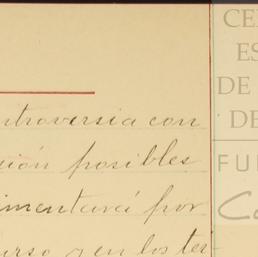 ntroversia con
ción posibles
imentará por
urso y en los tér
CE
ES
DE
DE
FU
Ca